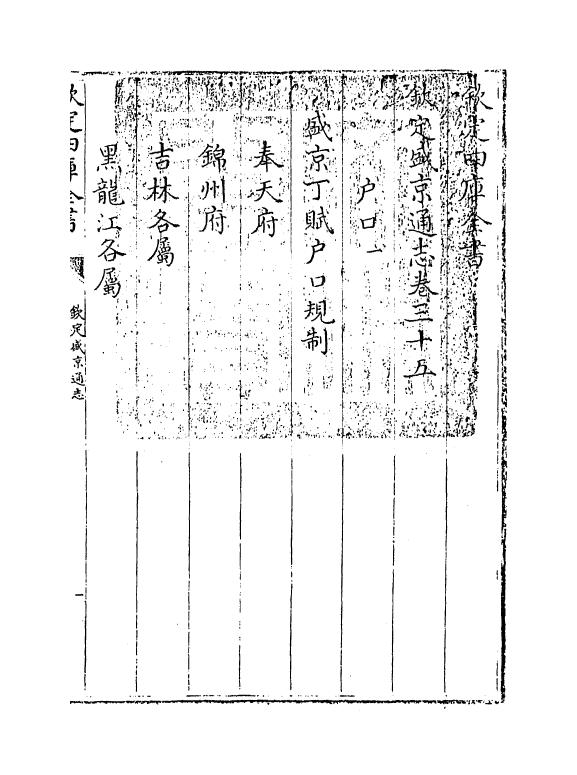 欽定四庫全書
欽定盛京通志卷三十五
户口一
盛京丁賦户口規制
奉天府
錦州府
吉林各屬
黑龍江各屬
欽定四庫全書
欽定盛京通志
一